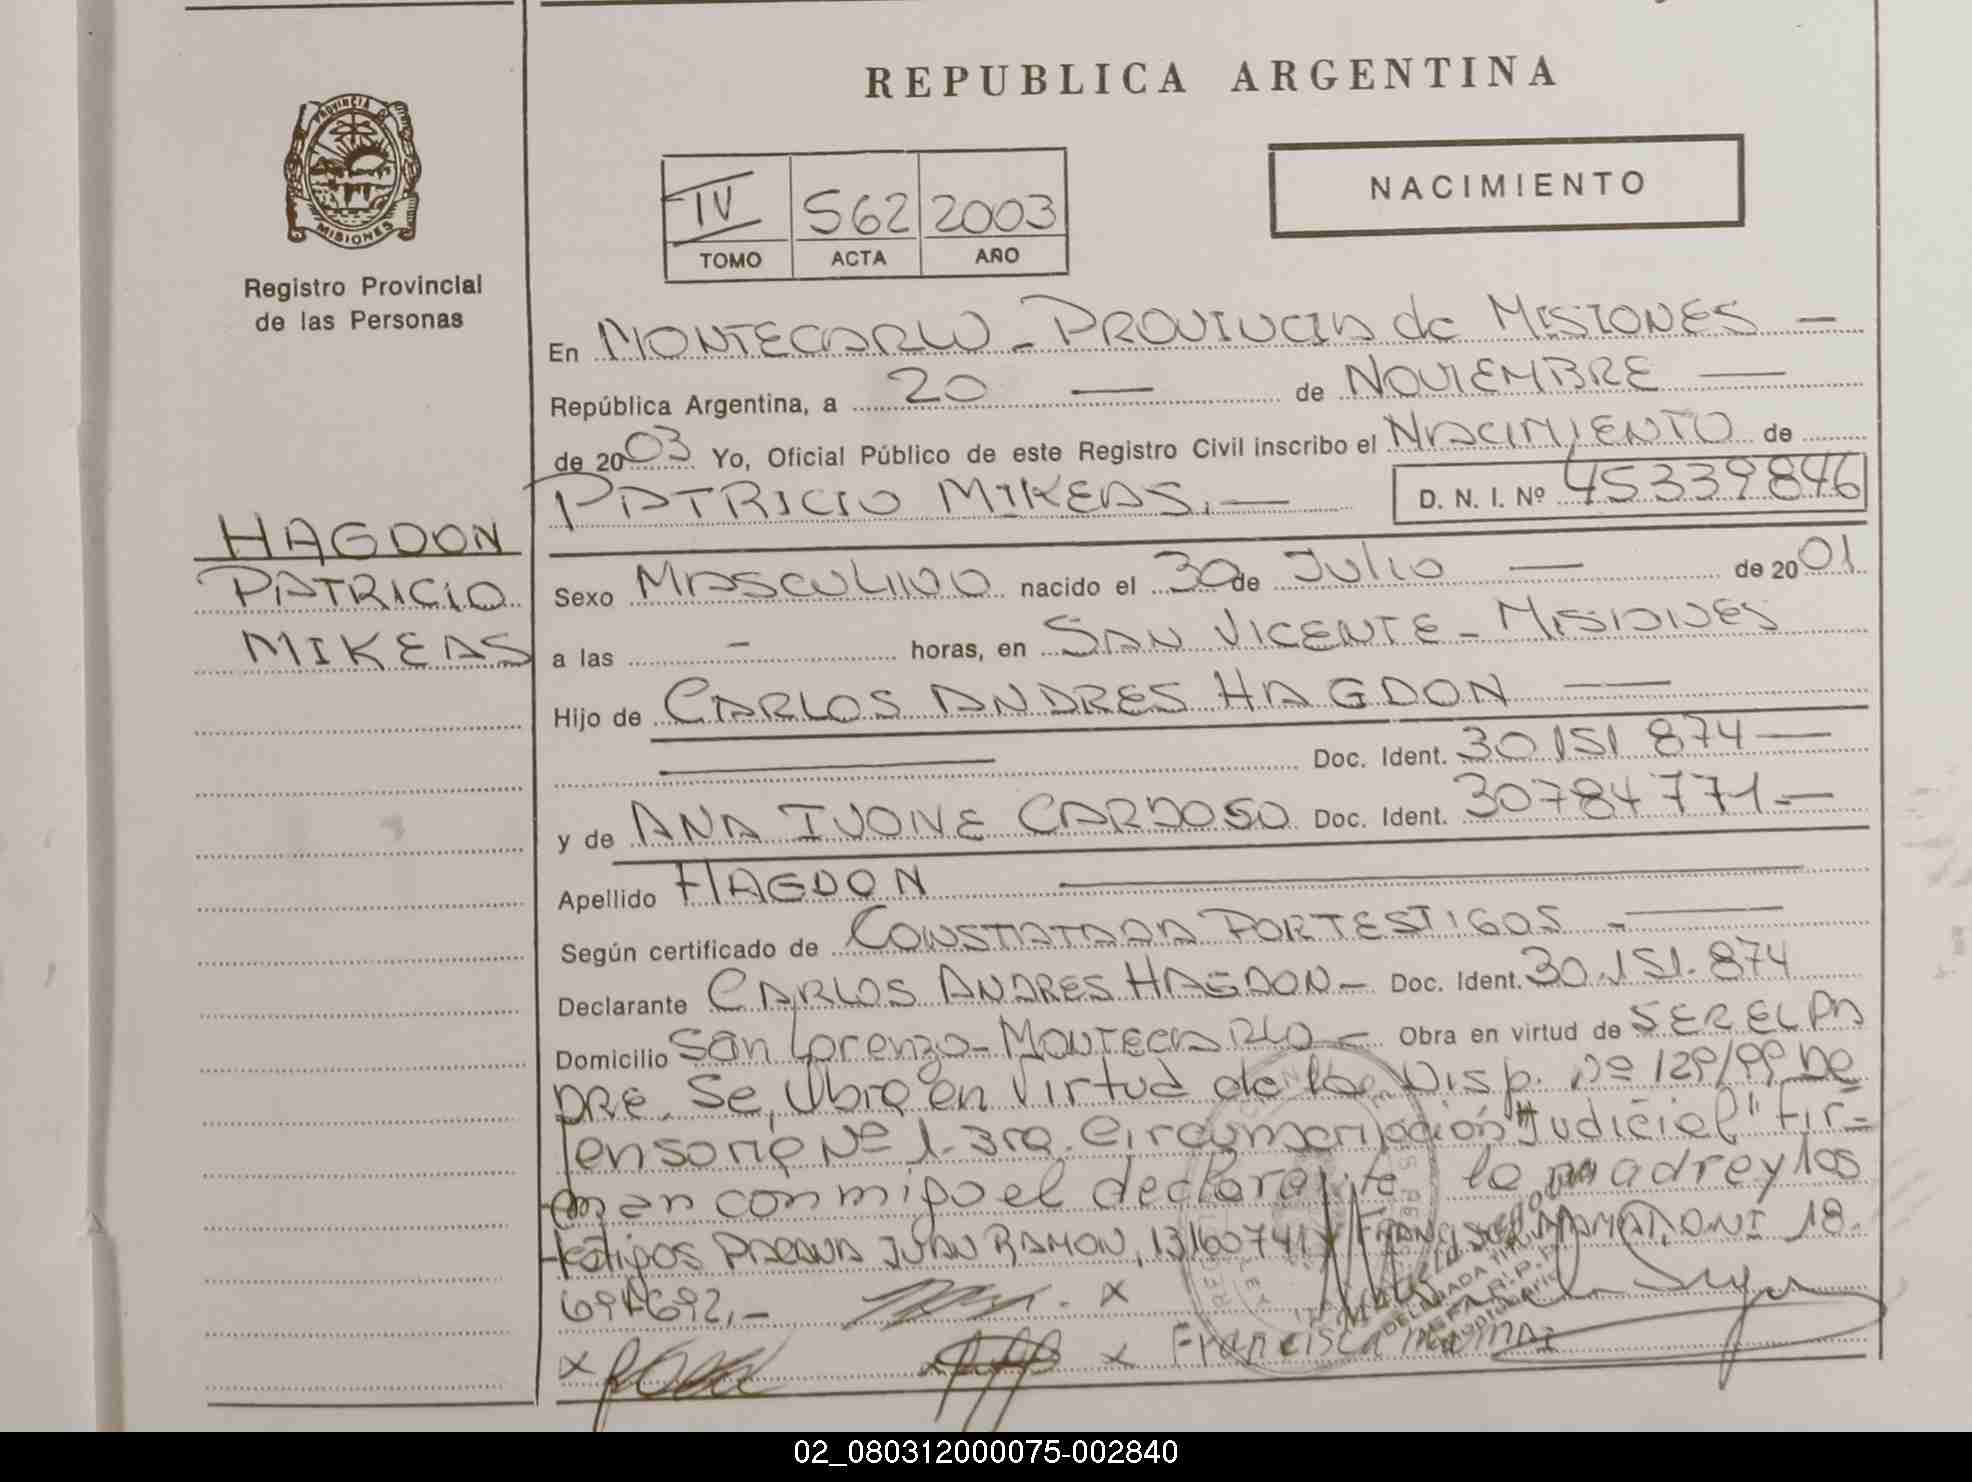 REPUBLICA ARGENTINA
PROVINCIA
MISIONES
Registro Provincial
de las Personas
NACIMIENTO
IV 562 2003
TOMO ACTA AÑO
En MONTECARLO - PROVINCIA de MISIONES -
República Argentina, a 20 — de NOVIEMBRE —
de 2003 Yo, Oficial Público de este Registro Civil inscribo el NACIMIENTO de
PATRICIO MIKEAS.- D. N. I. Nº 45339846
HAGDON
PATRICIO
MIKEAS
Sexo MASCULINO nacido el 30 de Julio — de 2001
a las - horas, en SAN VICENTE - MISIONES
Hijo de CARLOS ANDRES HAGDON —
Doc. Ident. 30.151.874 —
y de ANA IVONE CARDOSO Doc. Ident. 30784771.-
Apellido HAGDON
Según certificado de CONSTATADA POR TESTIGOS -
Declarante CARLOS ANDRES HAGDON - Doc. Ident. 30.151.874
Domicilio San Lorenzo - MONTECARLO - Obra en virtud de SER EL PA
DRE. Se Ubica en Virtud de la Disp. Nº 129/99 De
fensoria Nº 1 - 3ra. Circunscripcion Judicial" Fir=
man conmigo el declarante la madre y los
testigos JUAN RAMON, 13160741 y 18.
694692.-
Francisca
02_080312000075-002840